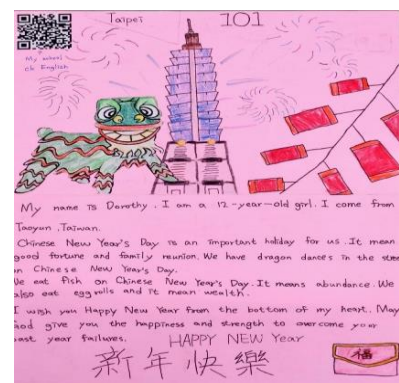 Taipei 101
My school
ck English
My name is Dorothy. I am a 12-year-old girl. I come from
Taoyun, Taiwan.
Chinese New Year's Day is an important holiday for us. It mean
good fortune and family reunion. We have dragon dances in the stree
on Chinese New Year's Day.
We eat fish on Chinese New Year's Day. It means abundance. We
also eat eggrolls and it mean wealth.
I wish you Happy New Year from the bottom of my heart. May
God give you the happiness and strength to overcome your
past year failures. HAPPY NEW Year
新年快樂
福